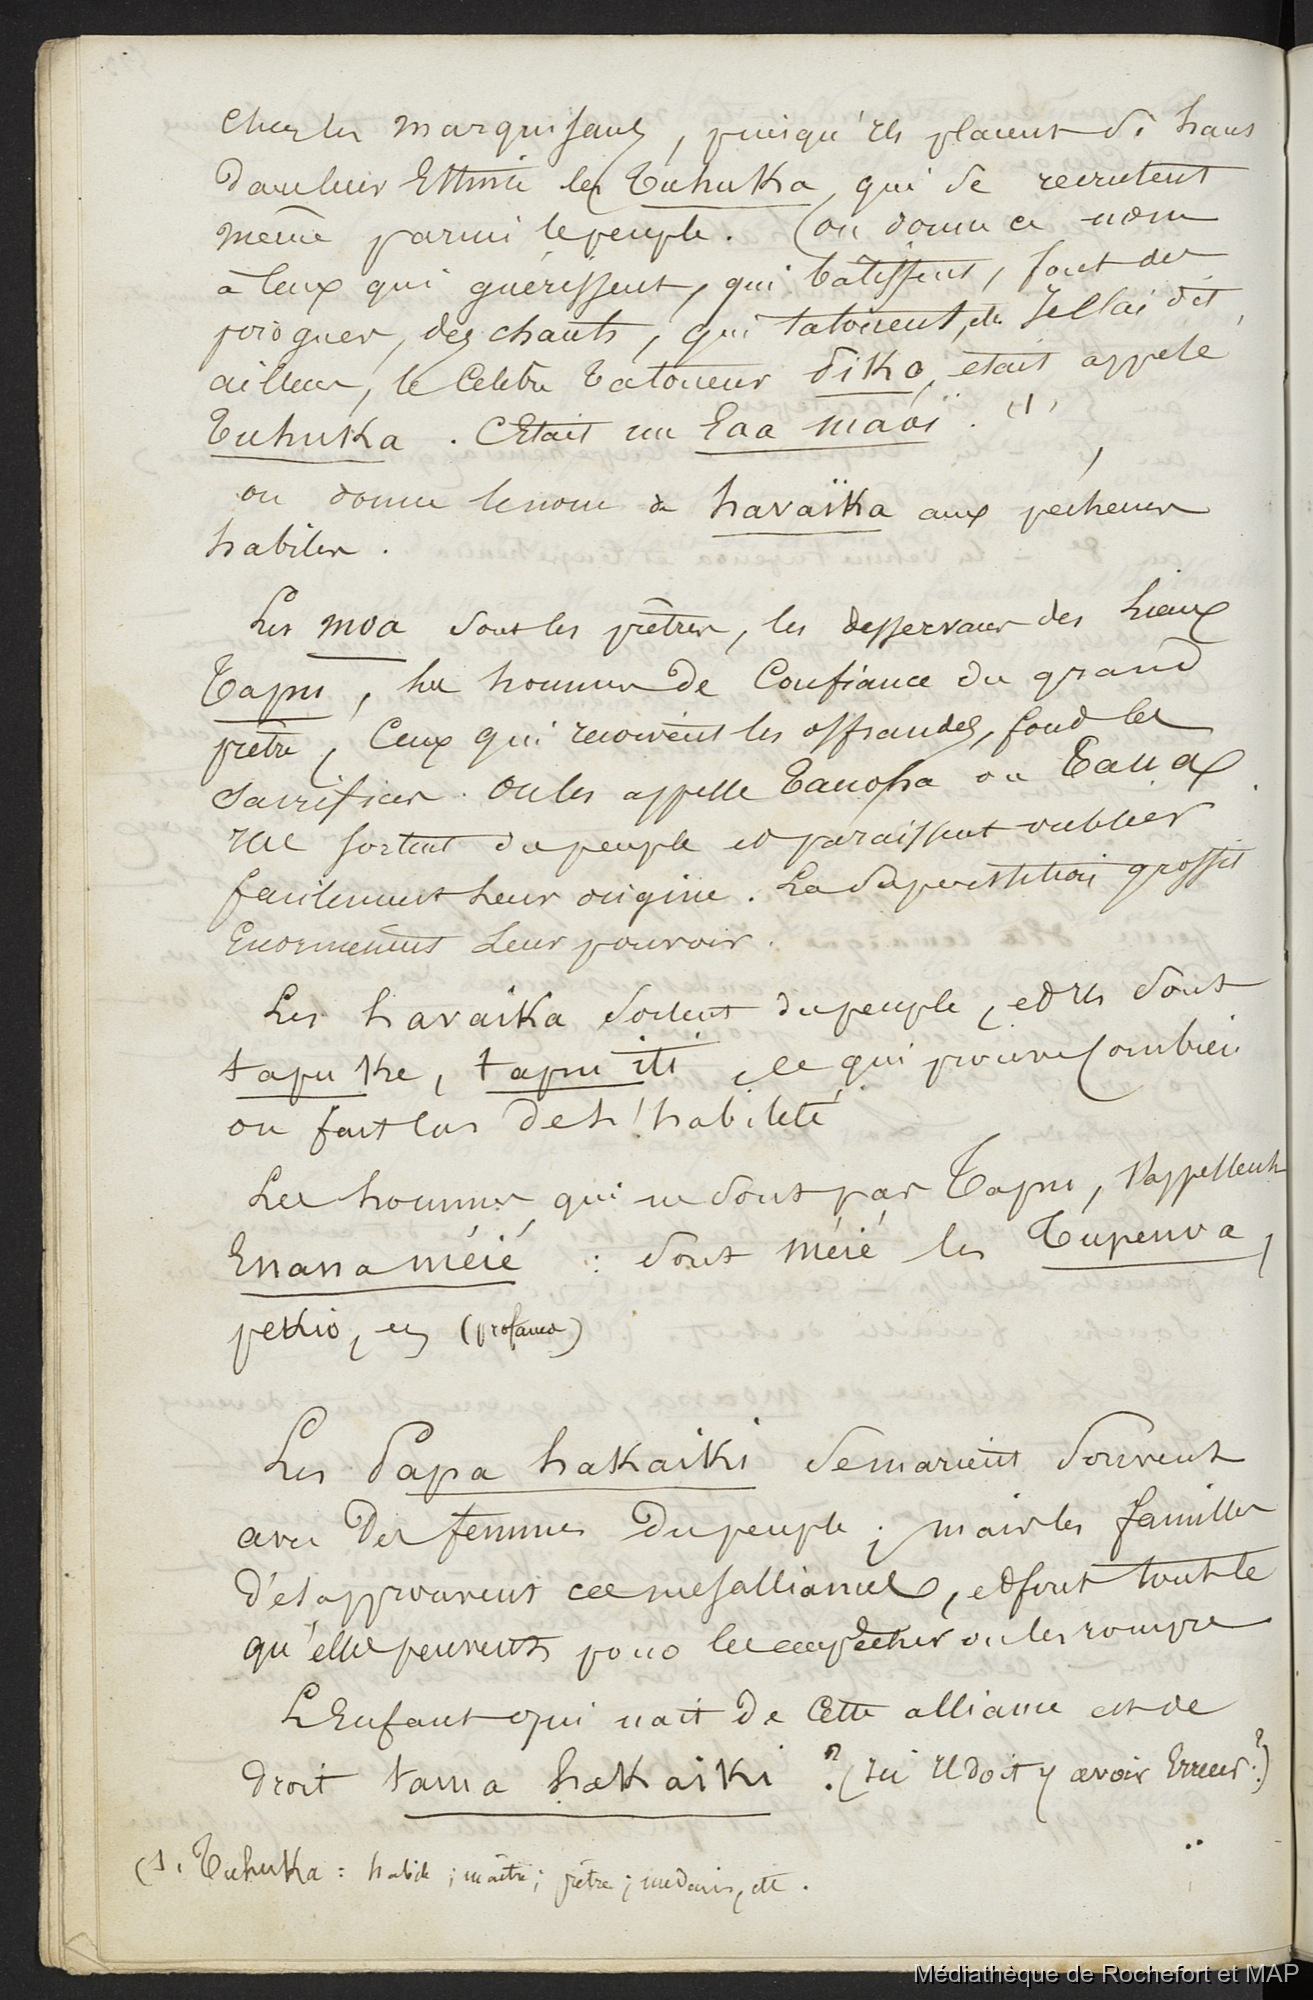 chez les marquisans, puisqu'ils placent si haut
dans leur Estime les Tuhuka, qui se recrutent
même parmi le peuple. (on donne ce nom
à Ceux qui guérissent, qui bâtissent, font des
pirogues, des chants, qui tatouent, etc Je l'ai dit
ailleurs, le Celebre tatoueur diko, etait appelé
Tuhuka. C'Etait un Eaa maoï. (1,
on donne le nom de havaïka aux pecheurs
habiles.
Les moa sont les prêtres, les desservans des Lieux
Tapu, les hommes de Confiance du grand
prêtre, Ceux qui recoivent les offrandes, font les
sacrifices. on les appelle Tauoha ou Taua
ils sortent du peuple et paraissent oublier
facilement leur origine. La superstition grossit
Enormement Leur pouvoir.
Les havaika sortent du peuple, et ils sont
tapu ke, tapu iti, ce qui prouve Combien
on fait cas de l'habileté
Les hommes qui ne sont pas Tapu, s'appellent
Enana méié : sont méié les Tupenva,
pekio, etc (profanes)
Les Papa hakaiki se marient souvent
avec Des femmes Du peuple ; mais les familles
D'esapprouvent ces mesalliances, et font tout ce
qu'elles peuvent pour les empêcher ou les rompre
L'Enfant qui nait De Cette alliance est de
droit tama hakaiki ? (ici il doit y avoir Erreur ?)
(1. Tuhuka : habile ; maître ; prêtre ; médecin, etc.
Médiathèque de Rochefort et MAP